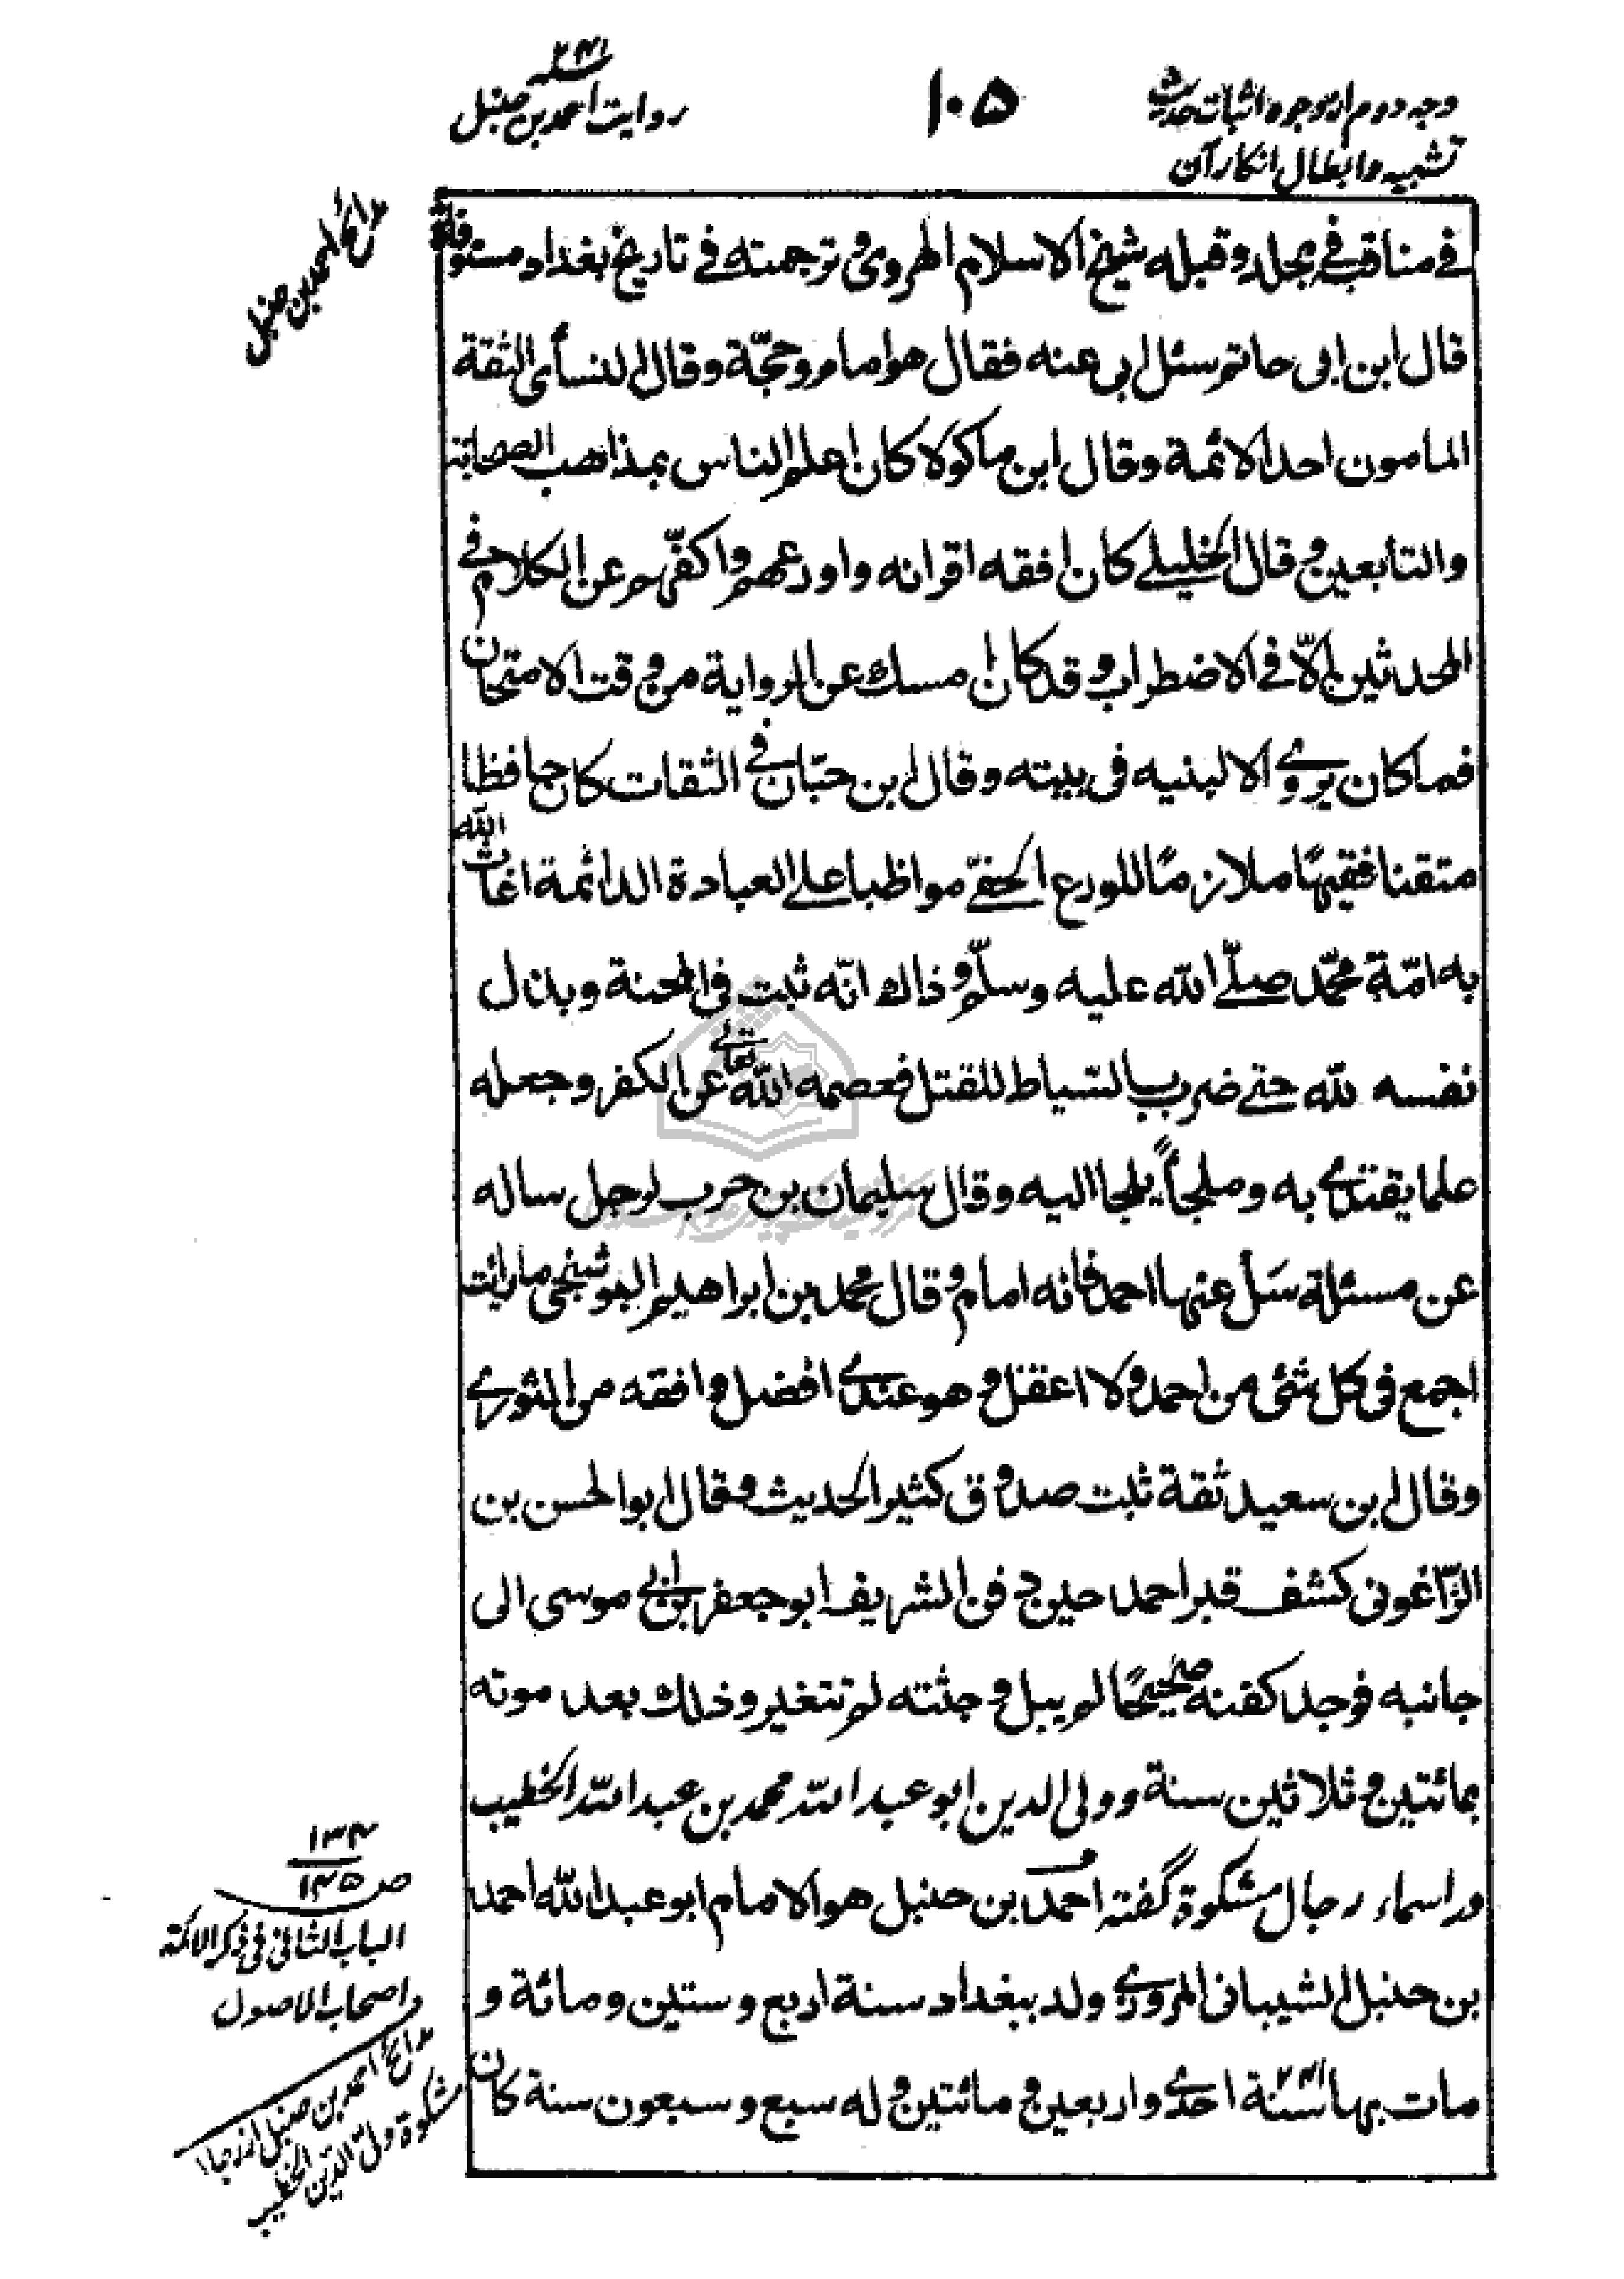 وجه دوم از وجوه اثبات حدیث
تشبیه و ابطال انکار آن
۱۰۵
۲۴۱
روایت احمد بن حنبل
مدائح احمد بن حنبل
فی مناقبه فی مجلد وقبله شیخ الاسلام الهروی وترجمته فی تاریخ بغداد مستوفاة
قال ابن ابی حاتم سئل ابی عنه فقال هو امام وحجّة وقال النسأی الثقة
المامون احد الائمة وقال ابن ماکولا کان اعلم الناس بمذاهب الصحابة
والتابعین وقال الخلیلی کان افقه اقرانه واورعهم واکفّهم عن الکلام فی
المحدثین الّا فی الاضطراب وقد کان امسک عن الروایة من وقت الامتحان
فما کان یروی الا لبنیه فی بیته وقال ابن حبّان فی الثقات کان حافظا
متقنا فقیهًا ملازمًا للورع الخفیّ مواظبا علی العبادة الدائمة اغاث الله
به امّة محمّد صلّی الله علیه وسلّم وذاک انّه ثبت فی المحنة وبذل
نفسه لله حتی ضرب بالسّیاط للقتل فعصمه الله تعالی عن الکفر وجعله
علما یقتدی به وملجأً یلجا الیه وقال سلیمان بن حرب لرجل ساله
عن مسئلة سَل عنها احمد فانه امام وقال محمد بن ابراهیم البوشنجی ما رائت
اجمع فی کل شئی من احمد ولا اعقل وهو عندی افضل وافقه من الثوری
وقال ابن سعید ثقة ثبت صدوق کثیر الحدیث وقال ابو الحسن بن
الزّاغونی کشف قبر احمد حین دفن الشریف ابو جعفر بن ابی موسی الی
جانبه فوجد کفنه صحیحًا لم یبل وجثته لم تتغیر وذلک بعد موته
بمائتین وثلاثین سنة وولی الدین ابو عبد الله محمد بن عبد الله الخطیب
در اسماء رجال مشکوة گفته احمد بن حنبل هو الامام ابو عبد الله احمد
بن حنبل الشیبانی المروزی ولد ببغداد سنة اربع وستین ومائة و
مات بها سنة ۲۴۱ احدی واربعین ومائتین وله سبع وسبعون سنة کان
۱۳۴
ص ۱۴۵
الباب الثانی فی ذکر الائمة
واصحاب الاصول
مدائح احمد بن حنبل از رجال
مشکوة ولی الدین الخطیب